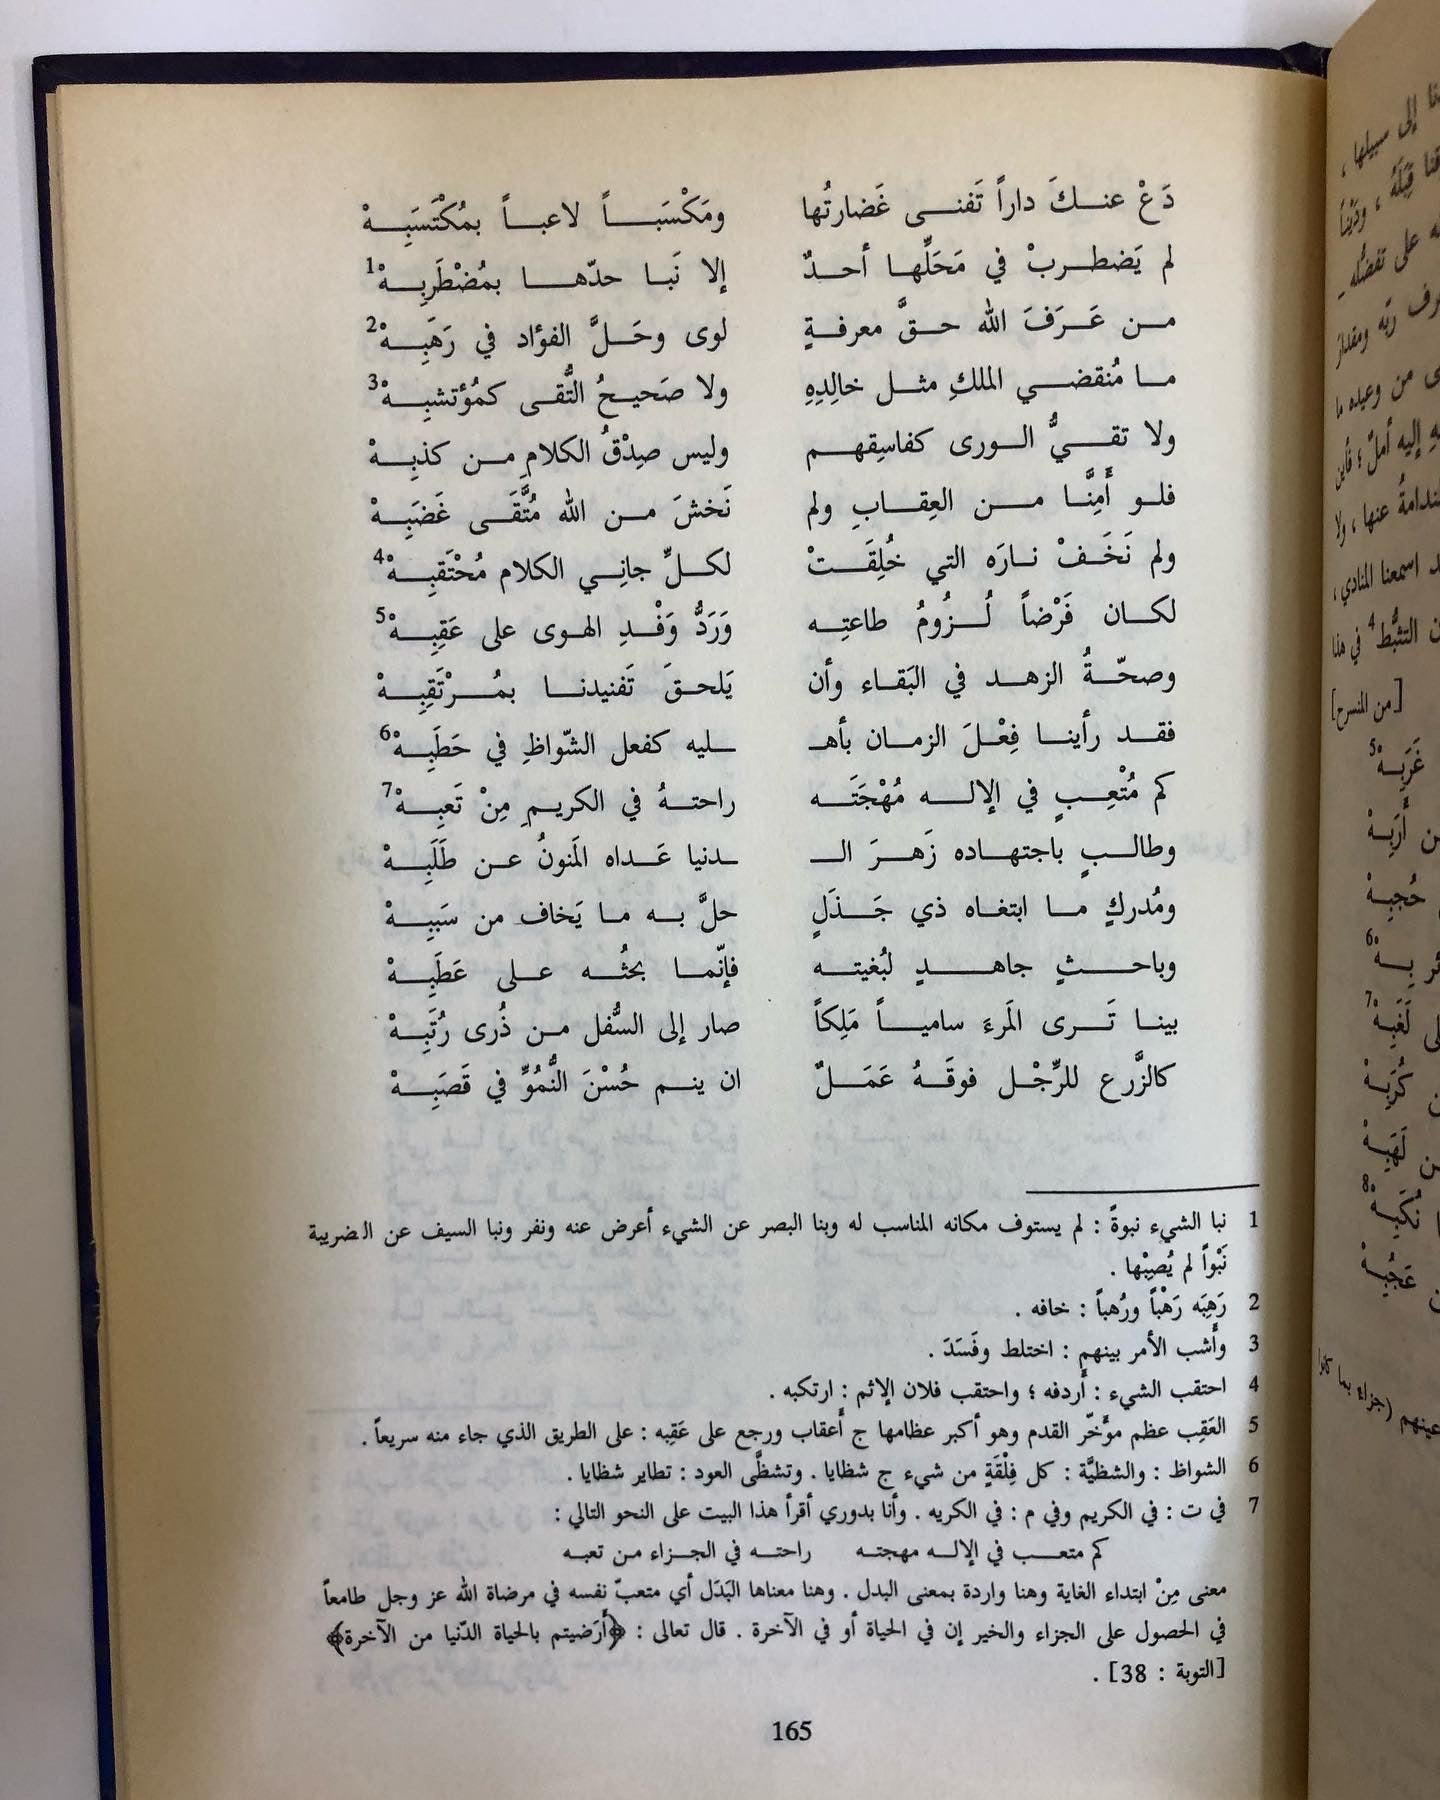 دَعْ عنـكَ داراً تَفنـى غَضارتُها ومَكْسَبـاً لاعبـاً بمُكْتَسَبِـهْ
لم يَضطـربْ في مَحَلِّهـا أحـدٌ إلا نَبـا حدّهـا بمُضْطَرِبِـهْ1
مـن عَـرَفَ الله حـقَّ معرفةٍ لوى وحَـلَّ الفؤاد في رَهَبِـهْ2
مـا مُنقضـي الملكِ مثـل خالِدِهِ ولا صَحيـحُ التُّقـى كمُؤتشبِـهْ3
ولا تقـيُّ الـورى كفاسِقهـم وليس صِدْقُ الكلامِ مـن كذبِـهْ
فلـو أَمِنَّـا مـن العِقـابِ ولم نَخشَ مـن الله مُتَّقَـى غَضَبِـهْ
ولم نَخَـفْ نـارَه التي خُلِقَـتْ لكـلِّ جانِـي الكلام مُحْتَقبِـهْ4
لكـان فَرْضـاً لُـزُومُ طاعتِـه وَرَدُّ وَفْـدِ الهـوى على عَقِبِـهْ5
وصحّـةُ الزهـد في البَقـاء وأن يَلحـقَ تَفنيدنـا بمُـرْتَقِبِـهْ
فقـد رأينـا فِعْلَ الزمـان بأهـ ـليه كفعل الشّواظِ في حَطَبِـهْ6
كم مُتْعِـبٍ في الإلـه مُهْجَتَـه راحتـهُ في الكريـمِ مِنْ تَعبِـهْ7
وطالـبٍ باجتهـاده زَهـرَ الـ ـدنيا عَـداه المَنونُ عـن طَلَبِـهْ
ومُدركٍ مـا ابتغـاه ذي جَـذَلٍ حلَّ بـه مـا يَخاف من سَبَبِـهْ
وباحـثٍ جاهـدٍ لبُغيتـه فإنّمـا بحثُـه علـى عَطَبِـهْ
بينـا تَـرى المَرءَ ساميـاً مَلِكاً صار إلى السُّفل مـن ذُرى رُتَبِـهْ
كالزَّرع للرِّجْـل فوقَـهُ عَمَـلٌ ان ينـم حُسْنَ النُّمُوِّ في قَصَبِـهْ
1 نبا الشيء نبوةً : لم يستوف مكانه المناسب له وبنا البصر عن الشيء أعرض عنه ونفر ونبا السيف عن الضريبة
نَبْواً لم يُصِبْها .
2 رَهِبَه رَهْباً ورُهباً : خافه .
3 وأَشب الأمر بينهم : اختلط وفَسَدَ .
4 احتقب الشيء : أَردفه ؛ واحتقب فلان الإثم : ارتكبه .
5 العَقِب عظم مؤَخّر القدم وهو أكبر عظامها ج أَعقاب ورجع على عَقِبه : على الطريق الذي جاء منه سريعاً .
6 الشواظ : والشظيَّة : كل فِلْقَةٍ من شيء ج شظايا . وتشظَّى العود : تطاير شظايا .
7 في ت : في الكريم وفي م : في الكريه . وأنا بدوري أقرأ هذا البيت على النحو التالي :
كم متعـب في الإلـه مهجتـه راحتـه في الجـزاء مـن تعبـه
معنى مِنْ ابتداء الغاية وهنا واردة بمعنى البدل . وهنا معناها البَدَل أي متعبّ نفسه في مرضاة الله عز وجل طامعاً
في الحصول على الجزاء والخير إن في الحياة أو في الآخرة . قال تعالى : ﴿أَرَضيتم بالحياة الدّنيا من الآخرة﴾
[التوبة : 38] .
165
إلى سبيلها ،
قِبَلَهُ ، ودَيْناً
على تفضُّلهِ
ربّه ومقدار
من وعيده ما
إليه أملٌ ؛ فأين
عنها ، ولا
اسمعنا المنادي ،
التثبُّط4 في هذا
[من المنسرح]
غَرَبِـهْ5
أَرَبِـهْ
حُجبِـهْ
لَغَبِـهْ7
كُرَبِـهْ
لَهَبِـهْ
نُكَبِـهْ8
عَجُبِـهْ
(جزاء بما كانوا